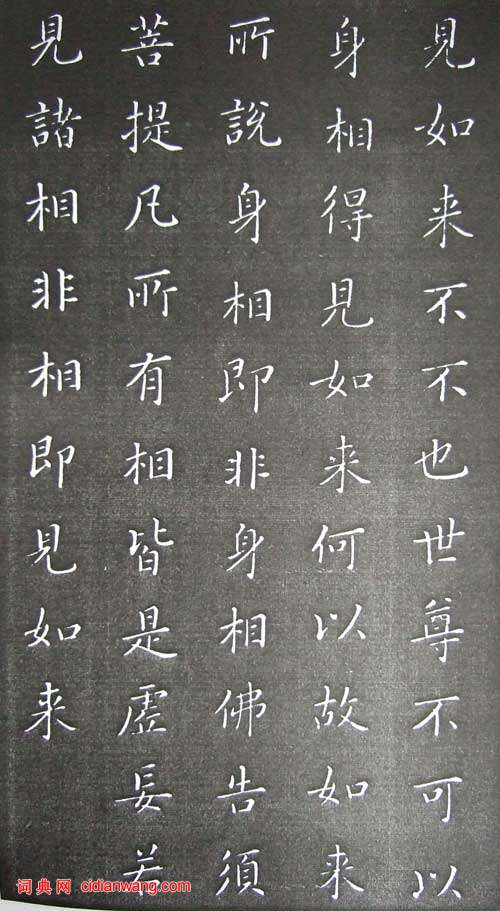 見如来不不也世尊不可以
身相得見如来何以故如来
所說身相即非身相佛告須
菩提凡所有相皆是虛妄若
見諸相非相即見如来
词典网 cidianwang.com